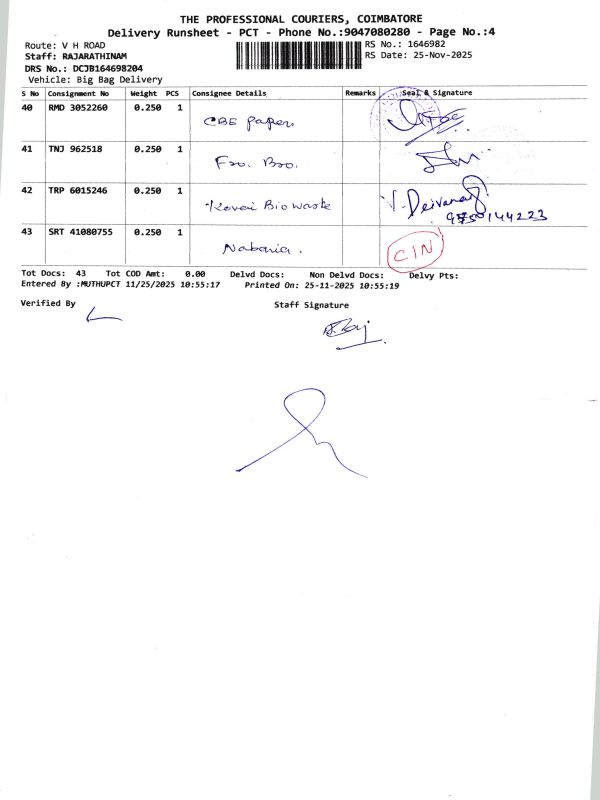 THE PROFESSIONAL COURIERS, COIMBATORE
Delivery Runsheet - PCT - Phone No.:9047080280 - Page No.:4
Route: V H ROAD RS No.: 1646982
Staff: RAJARATHINAM RS Date: 25-Nov-2025
DRS No.: DCJB164698204
Vehicle: Big Bag Delivery
S No Consignment No Weight PCS Consignee Details Remarks Seal & Signature
40 RMD 3052260 0.250 1 CBE papers
41 TNJ 962518 0.250 1 Fso. Bso.
42 TRP 6015246 0.250 1 Kovai Bio Waste V. Deivanai
9750144223
43 SRT 41080755 0.250 1 Nabaria. CIN
Tot Docs: 43 Tot COD Amt: 0.00 Delvd Docs: Non Delvd Docs: Delvy Pts:
Entered By :MUTHUPCT 11/25/2025 10:55:17 Printed On: 25-11-2025 10:55:19
Verified By Staff Signature